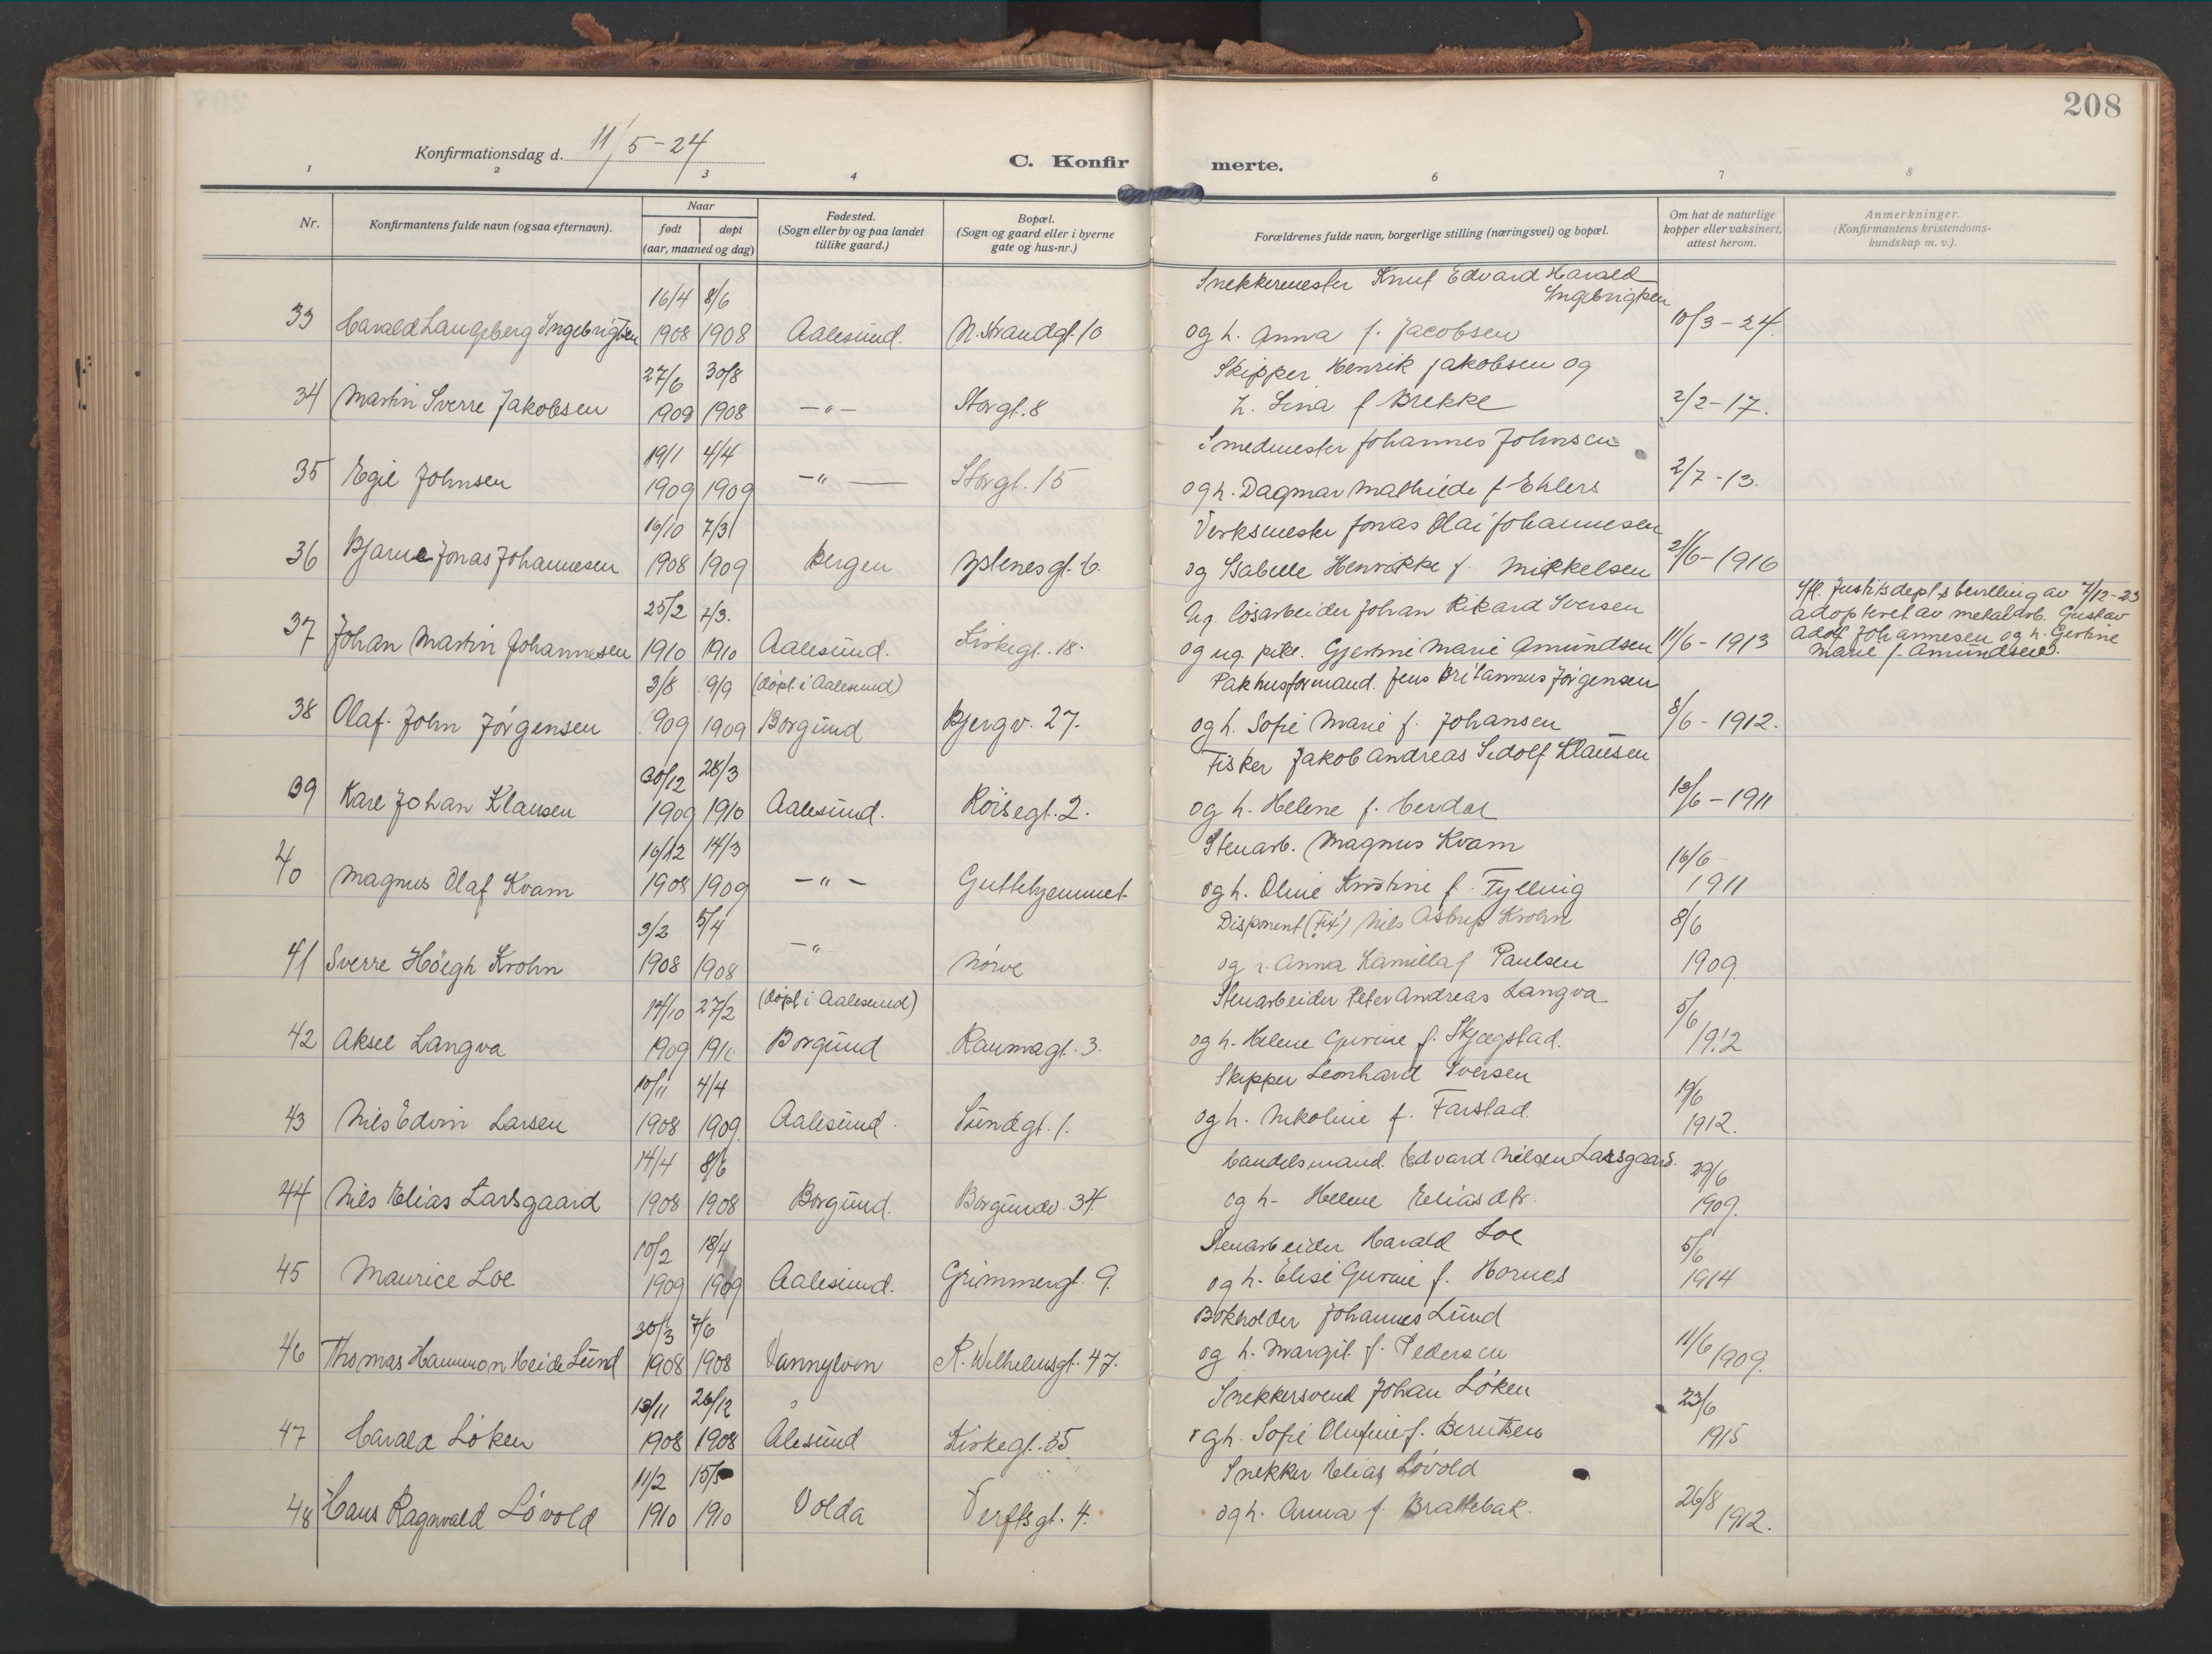 208
Konfirmationsdag d. 11/5-24
C. Konfirmerte.
1 2 3 4 6 7 8
Nr. Konfirmantens fulde navn (ogsaa efternavn). Naar født døpt (aar, maaned og dag) Fødested. (Sogn eller by og paa landet tillike gaard.) Bopæl. (Sogn og gaard eller i byerne gate og hus-nr.) Forældrenes fulde navn, borgerlige stilling (næringsvei) og bopæl. Om hat de naturlige kopper eller vaksinert, attest herom. Anmerkninger. (Konfirmantens kristendoms-kundskap m. v.).
16/4 8/6 Snekkermester Knut Edvard Harald Ingebrigtsen
33 Harald Langeberg Ingebrigtsen 1908 1908 Aalesund. N. Strandgt. 10 og h. Anna f. Jacobsen 10/3-24.
27/6 30/8 Skipper Henrik Jakobsen og
34 Martin Sverre Jakobsen 1908 1908 -"- Storgt. 8 h. Lina f Brekke 2/2-17.
19/1 4/4 Smedmester Johannes Johnsen
35 Egil Johnsen 1909 1909 -"- Storgt. 15 og h. Dagmar Mathilde f Ehlers 2/7-13.
16/10 7/3 Verksmester Jonas Olai Johannesen
36 Bjarne Jonas Johannesen 1908 1909 Bergen Ystenesgt. 6. og Isabelle Henrikke f. Mikkelsen 21/6-1916
25/2 7/3. Ug. løsarbeider Johan Rikard Iversen
37 Johan Martin Johannesen 1910 1910 Aalesund. Kirkegt. 18. og ug. pike. Gjertine Marie Amundsen 11/6-1913
Ifl. Justitsdept's bevilling av 7/12-23
adopteret av metalarb. Gustav
Adolf Johannesen og h. Gertine
Marie f. Amundsen.
3/8 9/9 (døpt i Aalesund) Pakhusformand. Jens Britannus Jørgensen
38 Olaf John Jørgensen 1909 1909 Borgund Bjergv. 27. og h. Sofie Marie f. Johansen 8/6-1912.
30/12 28/3 Fisker Jakob Andreas Sidolf Klausen
39 Karl Johan Klausen 1909 1910 Aalesund. Røisegt. 2. og h. Helene f. Herdal 13/6-1911
16/12 14/3 Stenarb. Magnus Kvam
40 Magnus Olaf Kvam 1908 1909 -"- Guttehjemmet og h. Oline Kristine f. Tylling 16/6-1911
3/2 5/4 Disponent (Fix) Nils Astrup Krohn
41 Sverre Höegh Krohn 1908 1908 -" Nørve og h. Anna Kamilla f Paulsen 8/6 1909
14/10 27/2 (døpt i Aalesund) Stenarbeider Peter Andreas Langva
42 Aksel Langva 1909 1910 Borgund Raumagt. 3. og h. Helene Gurine f. Skjegstad. 5/6 1912
10/11 4/4 Skipper Leonhard Iversen
43 Nils Edvin Larsen 1908 1909. Aalesund. Sundgt. 1. og h. Nikoline f. Farstad. 19/6 1912.
14/4 8/6 Handelsmand. Edvard Nilsen Larsgaard.
44 Nils Elias Larsgaard 1908 1908 Borgund. Borgundv. 34. og h- Helene Eliasdtr. 29/6 1909.
10/2 18/4 Stenarbeider Harald Loe
45 Maurice Loe 1909 1909 Aalesund. Grimmergt. 9. og h- Elise Gurine f. Hornes 5/6 1914
30/3 7/6 Bokholder Johannes Lund
46 Thomas Hammon Heide Lund 1908 1908 Vannylven K. Wilhelmsgt. 47. og h. Margit f. Pedersen 11/6 1909.
13/11 26/12 Snekkersvend Johan Løken
47 Harald Løken 1908 1908 Ålesund Kirkegt. 35. og h. Sofie Olufine f. Berntsen 23/6 1915
11/2 15/5 Snekker Elias Løvold
48 Hans Ragnvald Løvold 1910 1910 Volda Verftsgt. 4. og h. Anna f. Brattebak. 26/8 1912.